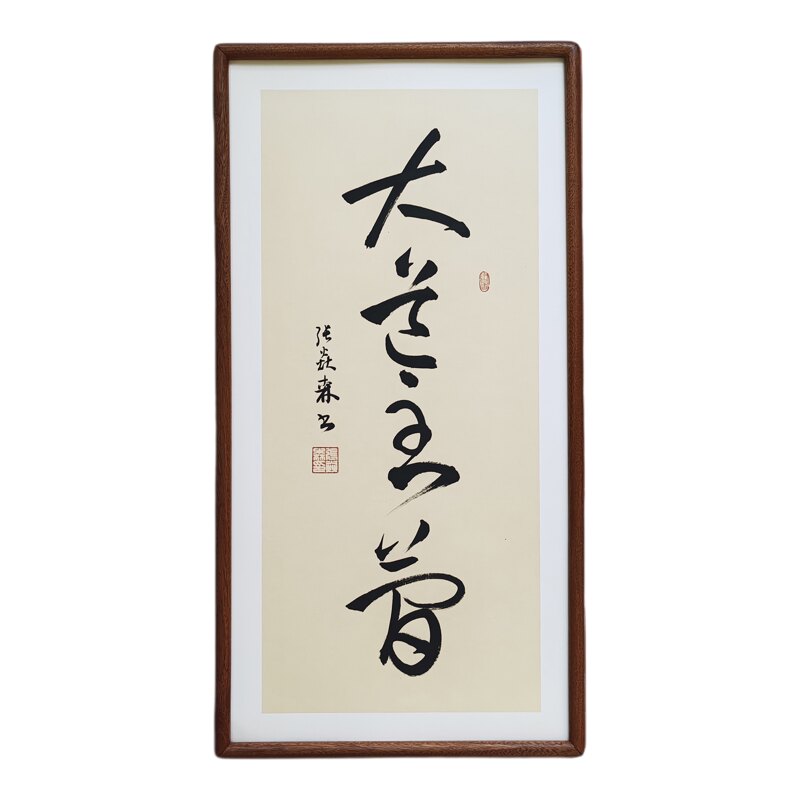 大道至简
张焱森书